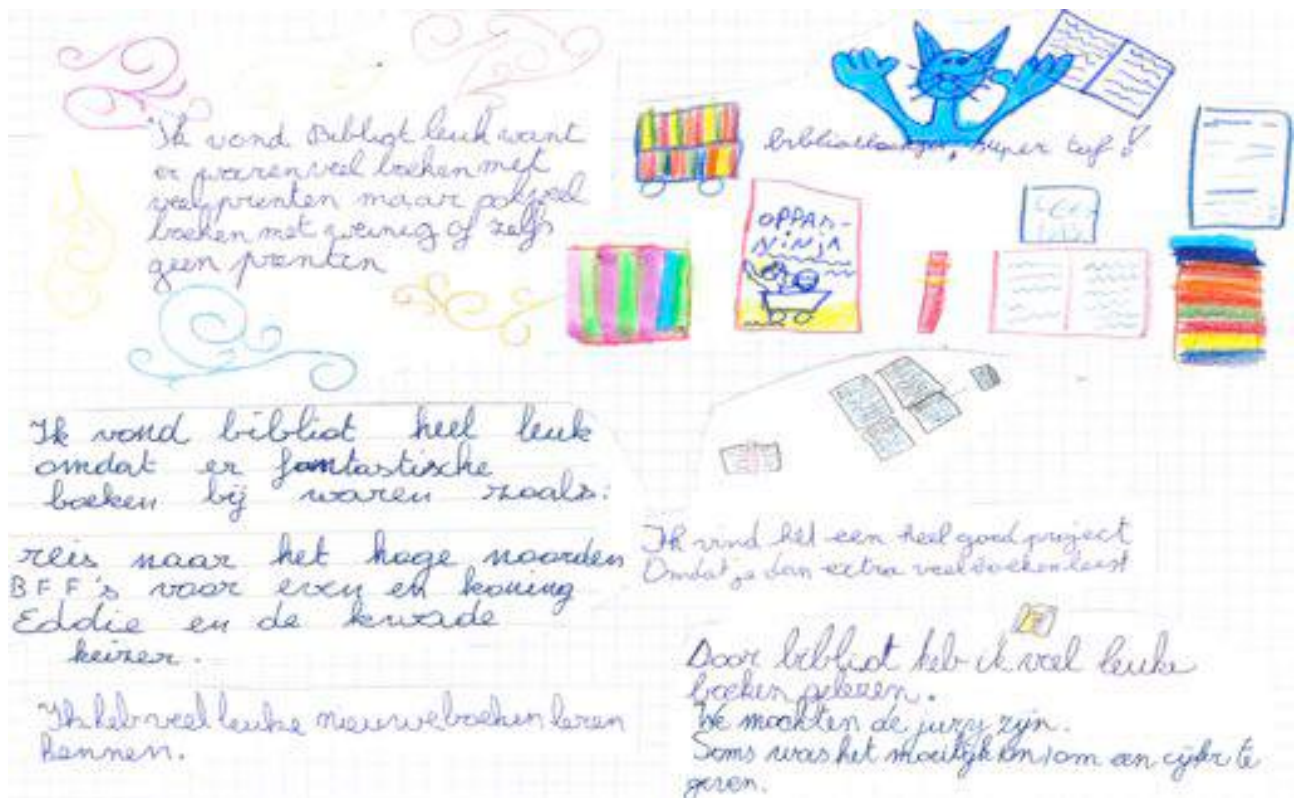 Ik vond Bibliot leuk want
er waren veel boeken met
veel prenten maar ook veel
boeken met weinig of zelfs
geen prenten
super tof!
OPPAS-
NINJA
Ik vond bibliot heel leuk
omdat er fantastische
boeken bij waren zoals:
reis naar het hoge noorden
BFF's voor even en koning
Eddie en de kwade
keizer.
Ik heb veel leuke nieuwe boeken leren
kennen.
Ik vind het een heel goed project
Omdat je dan extra veel boeken leest
Door bibliot heb ik veel leuke
boeken gelezen.
We mochten de jury zijn.
Soms was het moeilijk om een cijfer te
geven.